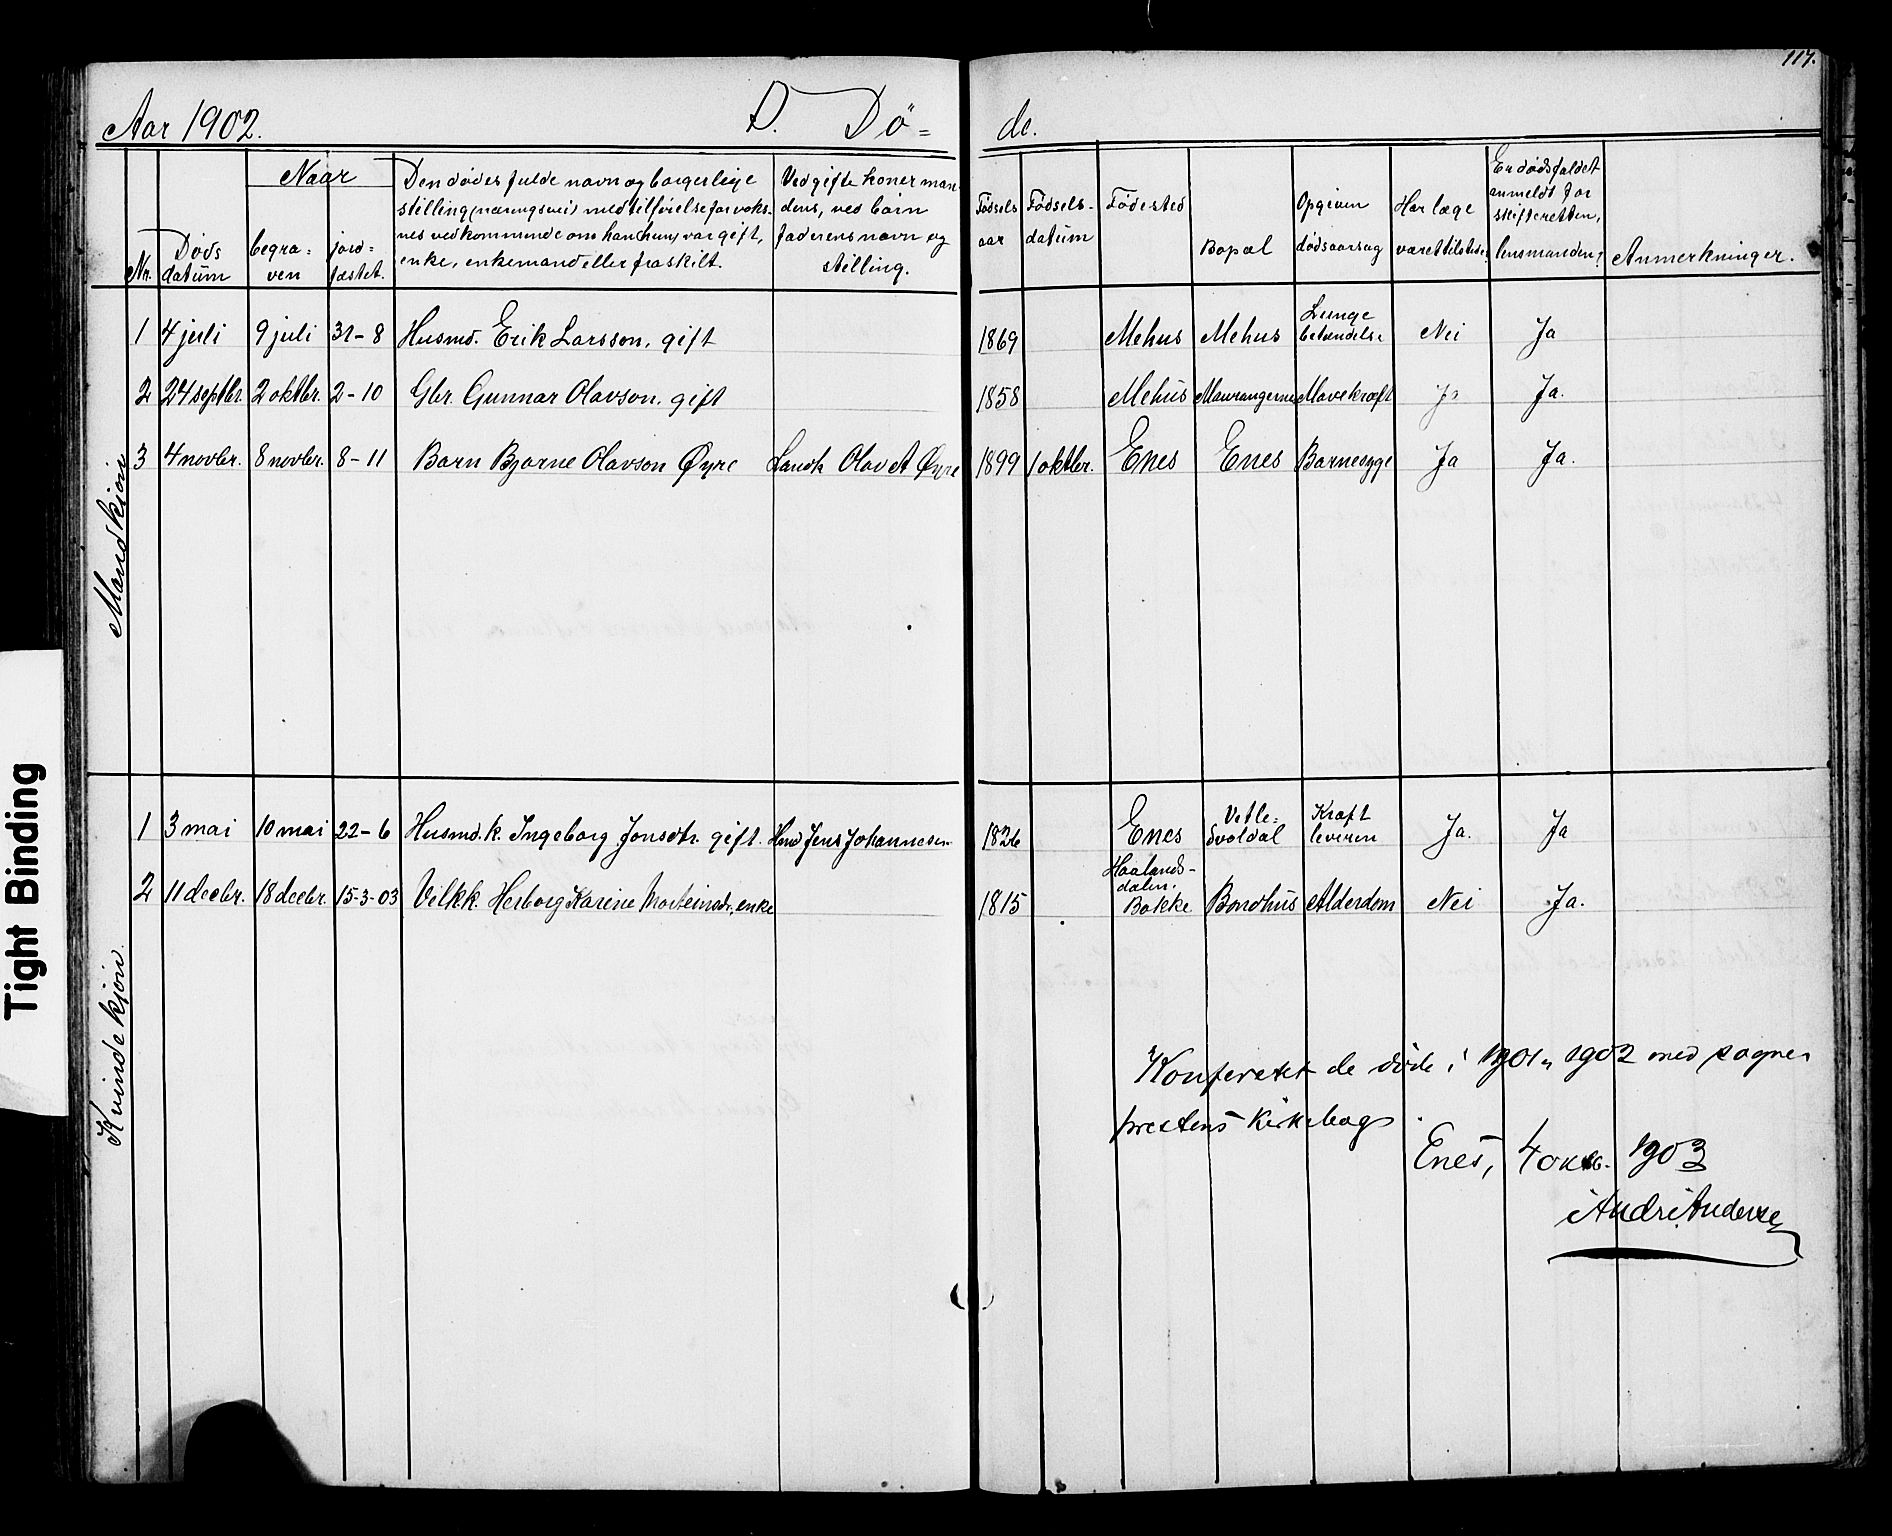 117.
Aar 1902. D. Dö= de.
Nr.
Naar
Döds datum
begra= ven
jord= fæstet.
Den dödes fulde navn og borgerlige
stilling (næringsvei) med tilföielse for voks-
nes vedkommende om han (hun) var gift,
enke, enkemand eller fraskilt.
Ved gifte koner man
dens, ved börn
faderens navn og
stilling.
Födsels aar
Födsels- datum
Födested
Bopæl
Opgiven dödsaarsag
Har læge været tilstede?
Er dödsfaldet
anmeldt for
skifteretten,
lensmanden?
Anmerkninger.
Mandkjön
1 4 juli 9 juli 31-8 Husmd. Erik Larsson, gift 1869 Mehus Mehus Lunge betændelse Nei Ja
2 24 septbr. 2 oktbr. 2-10 Gbr. Gunnar Olavson, gift 1858 Mehus Maurangerne Mavekræft Ja Ja.
3 4 novbr. 8 novbr. 8-11 Barn Bjarne Olavson Øyre Landh Olav A Øyre 1899 1 oktbr. Enes Enes Barnesyge Ja Ja.
Kvindekjön.
1 3 mai 10 mai 22-6 Husmd. k. Ingeborg Jonsdtr. gift. Hmd Jens Johannesen 1826 Enes Vetle= Svoldal Kræft leveren Ja. Ja
2 11 decbr. 18 decbr. 15-3-03 Vilkk. Herborg Karine Morteinsdr., enke 1815 Haalands- dalen. Bakke Bondhus Alderdom Nei Ja.
Konferert de döde i 1901 1902 med sogne
prestens kirkebog.
Enes, 4 oktb. 1903
Andr. Anderse
Tight Binding